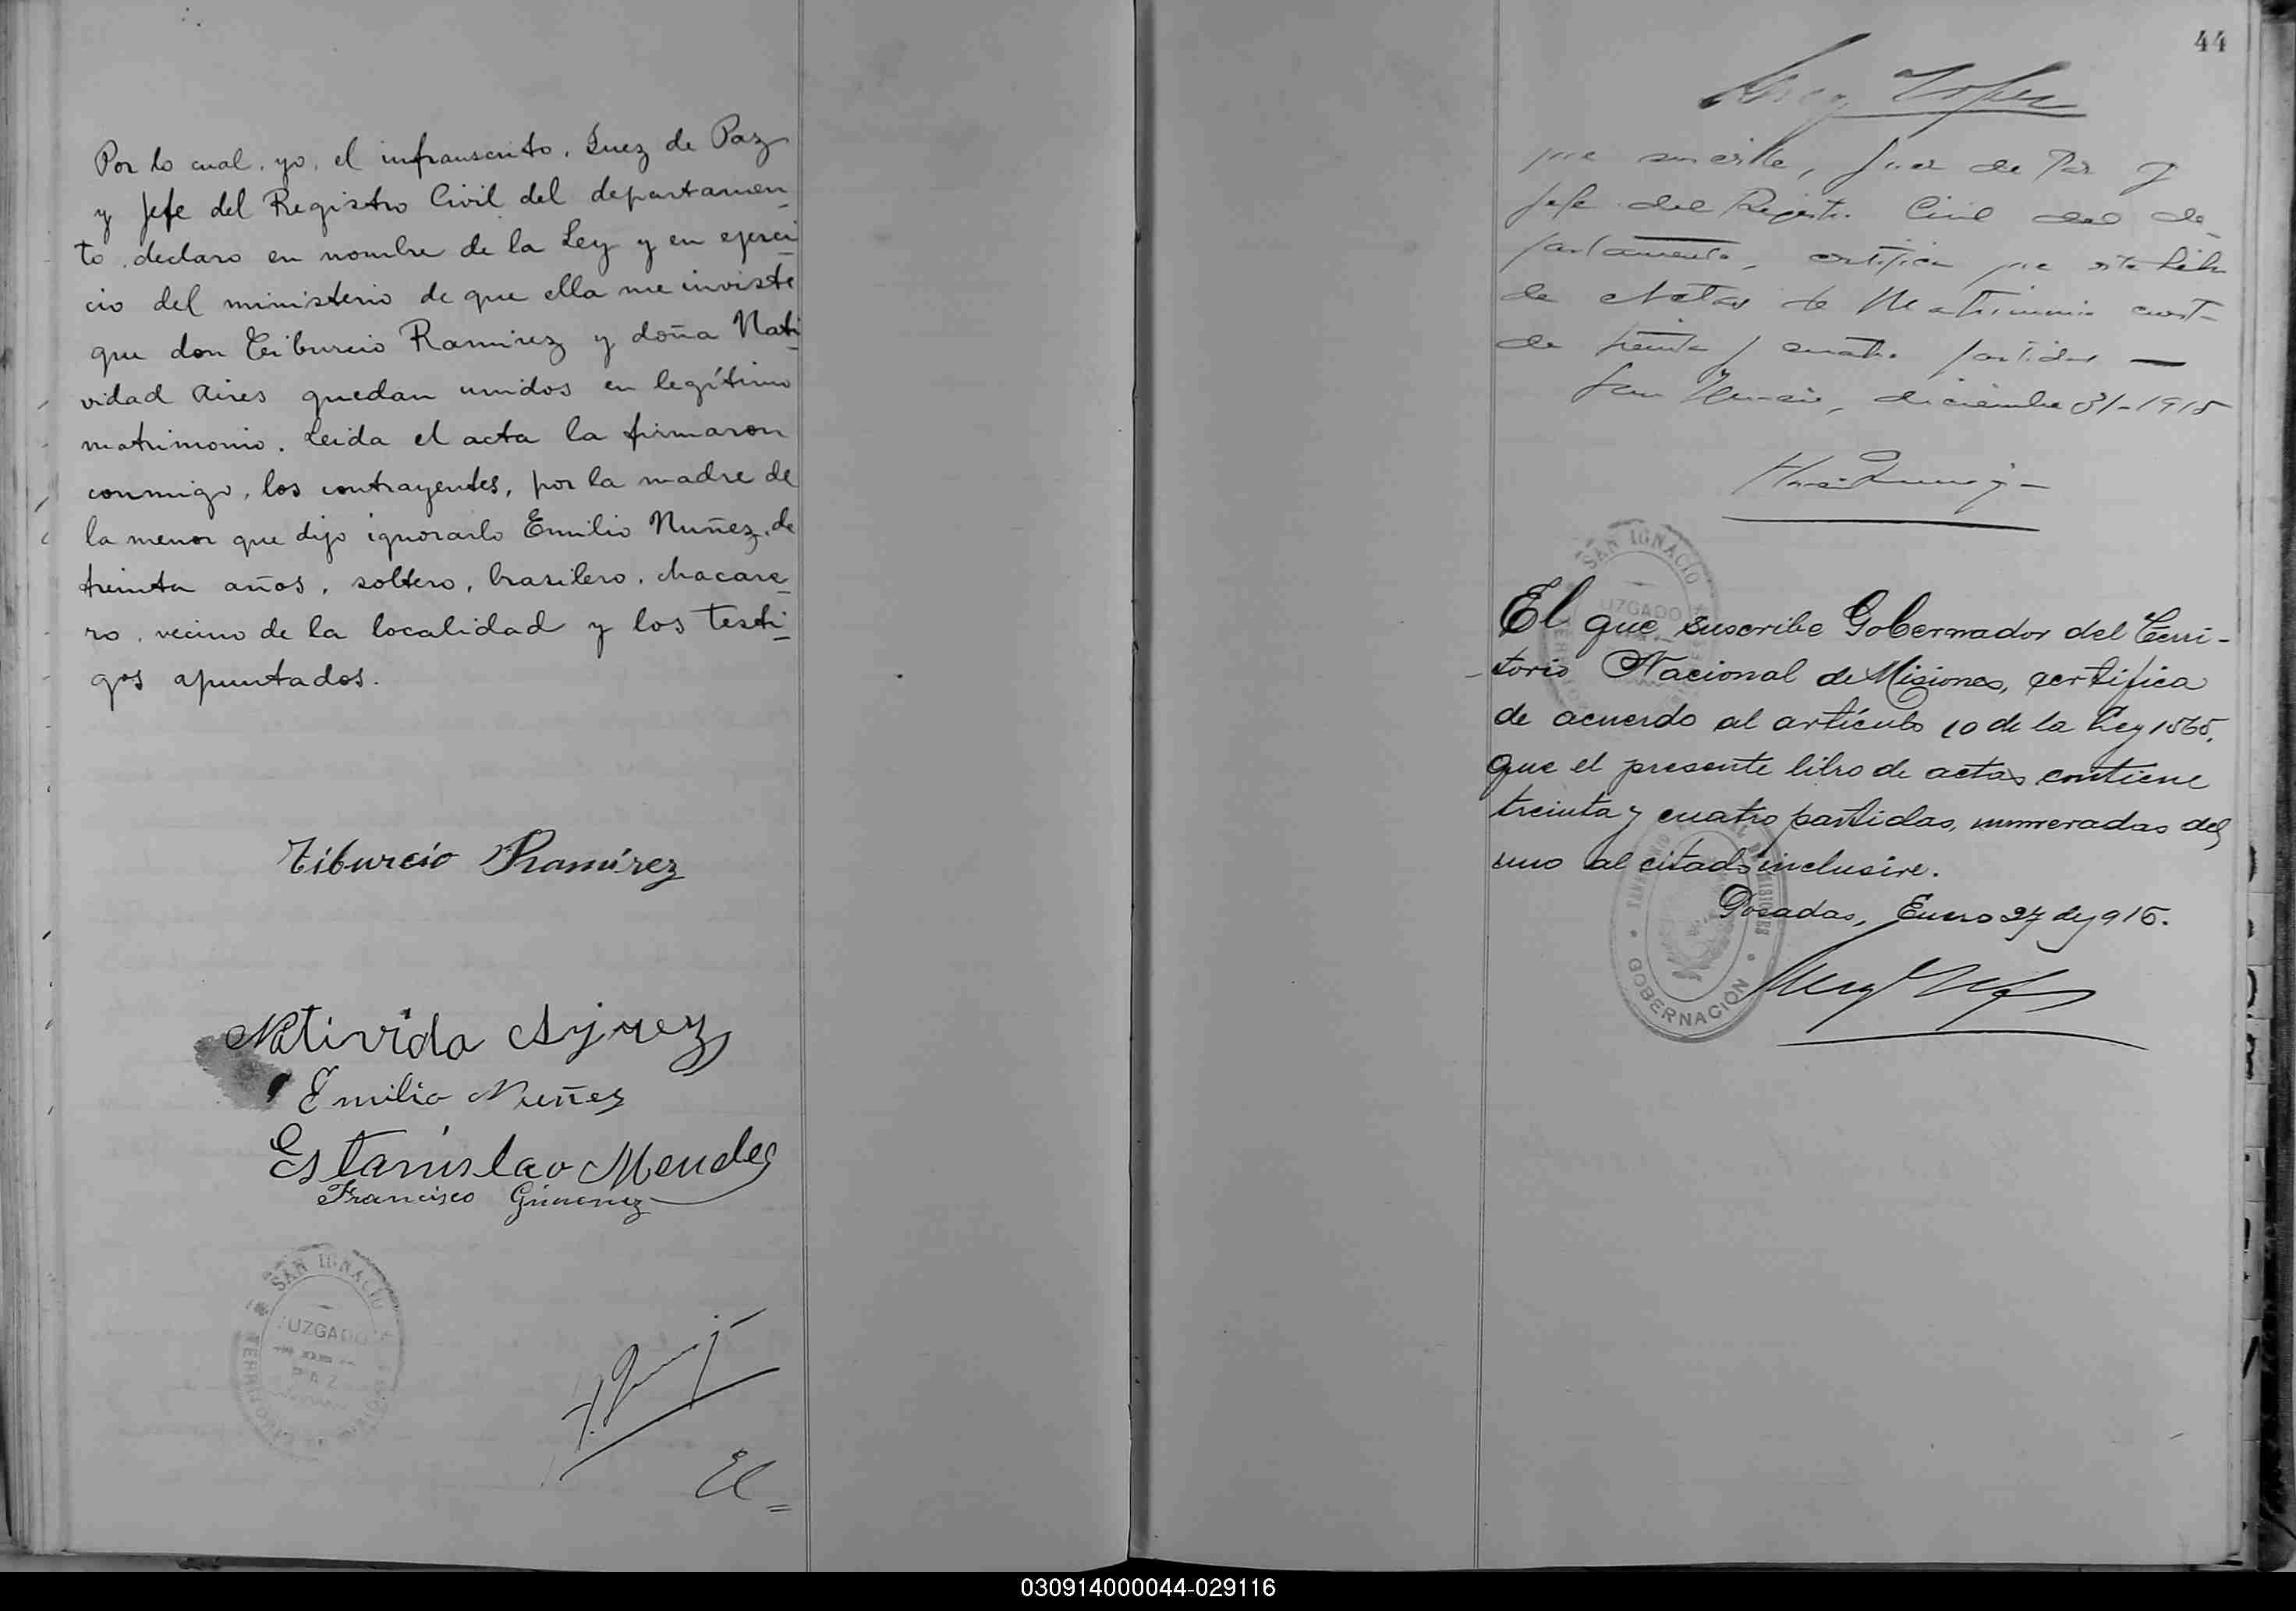 Por lo cual, yo, el infranscrito, Juez de Paz
y Jefe del Registro Civil del departamen
to, declaro en nombre de la Ley y en ejerci
cio del ministerio de que ella me inviste
que don Tiburcio Ramirez y doña Nati
vidad Aires quedan unidos en legítimo
matrimonio. Leida el acta la firmaron
conmigo, los contrayentes, por la madre de
la menor que dijo ignorarlo Emilio Nuñez, de
treinta años, soltero, brasilero, chacare
ro, vecino de la localidad y los testi
gos apuntados.
Tiburcio Ramírez
Nativida Ayrez
Emilio Nuñez
Estanislao Mendez
Francisco Gimenez
SAN IGNACIO
JUZGADO
PAZ
El=
44
que suscribe, Juez de Paz y
Jefe del Registro Civil del de-
partamento, certifica que este Libro
de Actas de Matrimonio consta
de treinta y cuatro partidas —
San Ignacio, diciembre 31-1915
SAN IGNACIO
JUZGADO
El que suscribe Gobernador del Terri-
-torio Nacional de Misiones, certifica
de acuerdo al artículo 10 de la Ley 1565,
que el presente libro de actas contiene
treinta y cuatro partidas, numeradas del
uno al citado inclusive.
Posadas, Enero 27 de 916.
GOBERNACIÓN
030914000044-029116